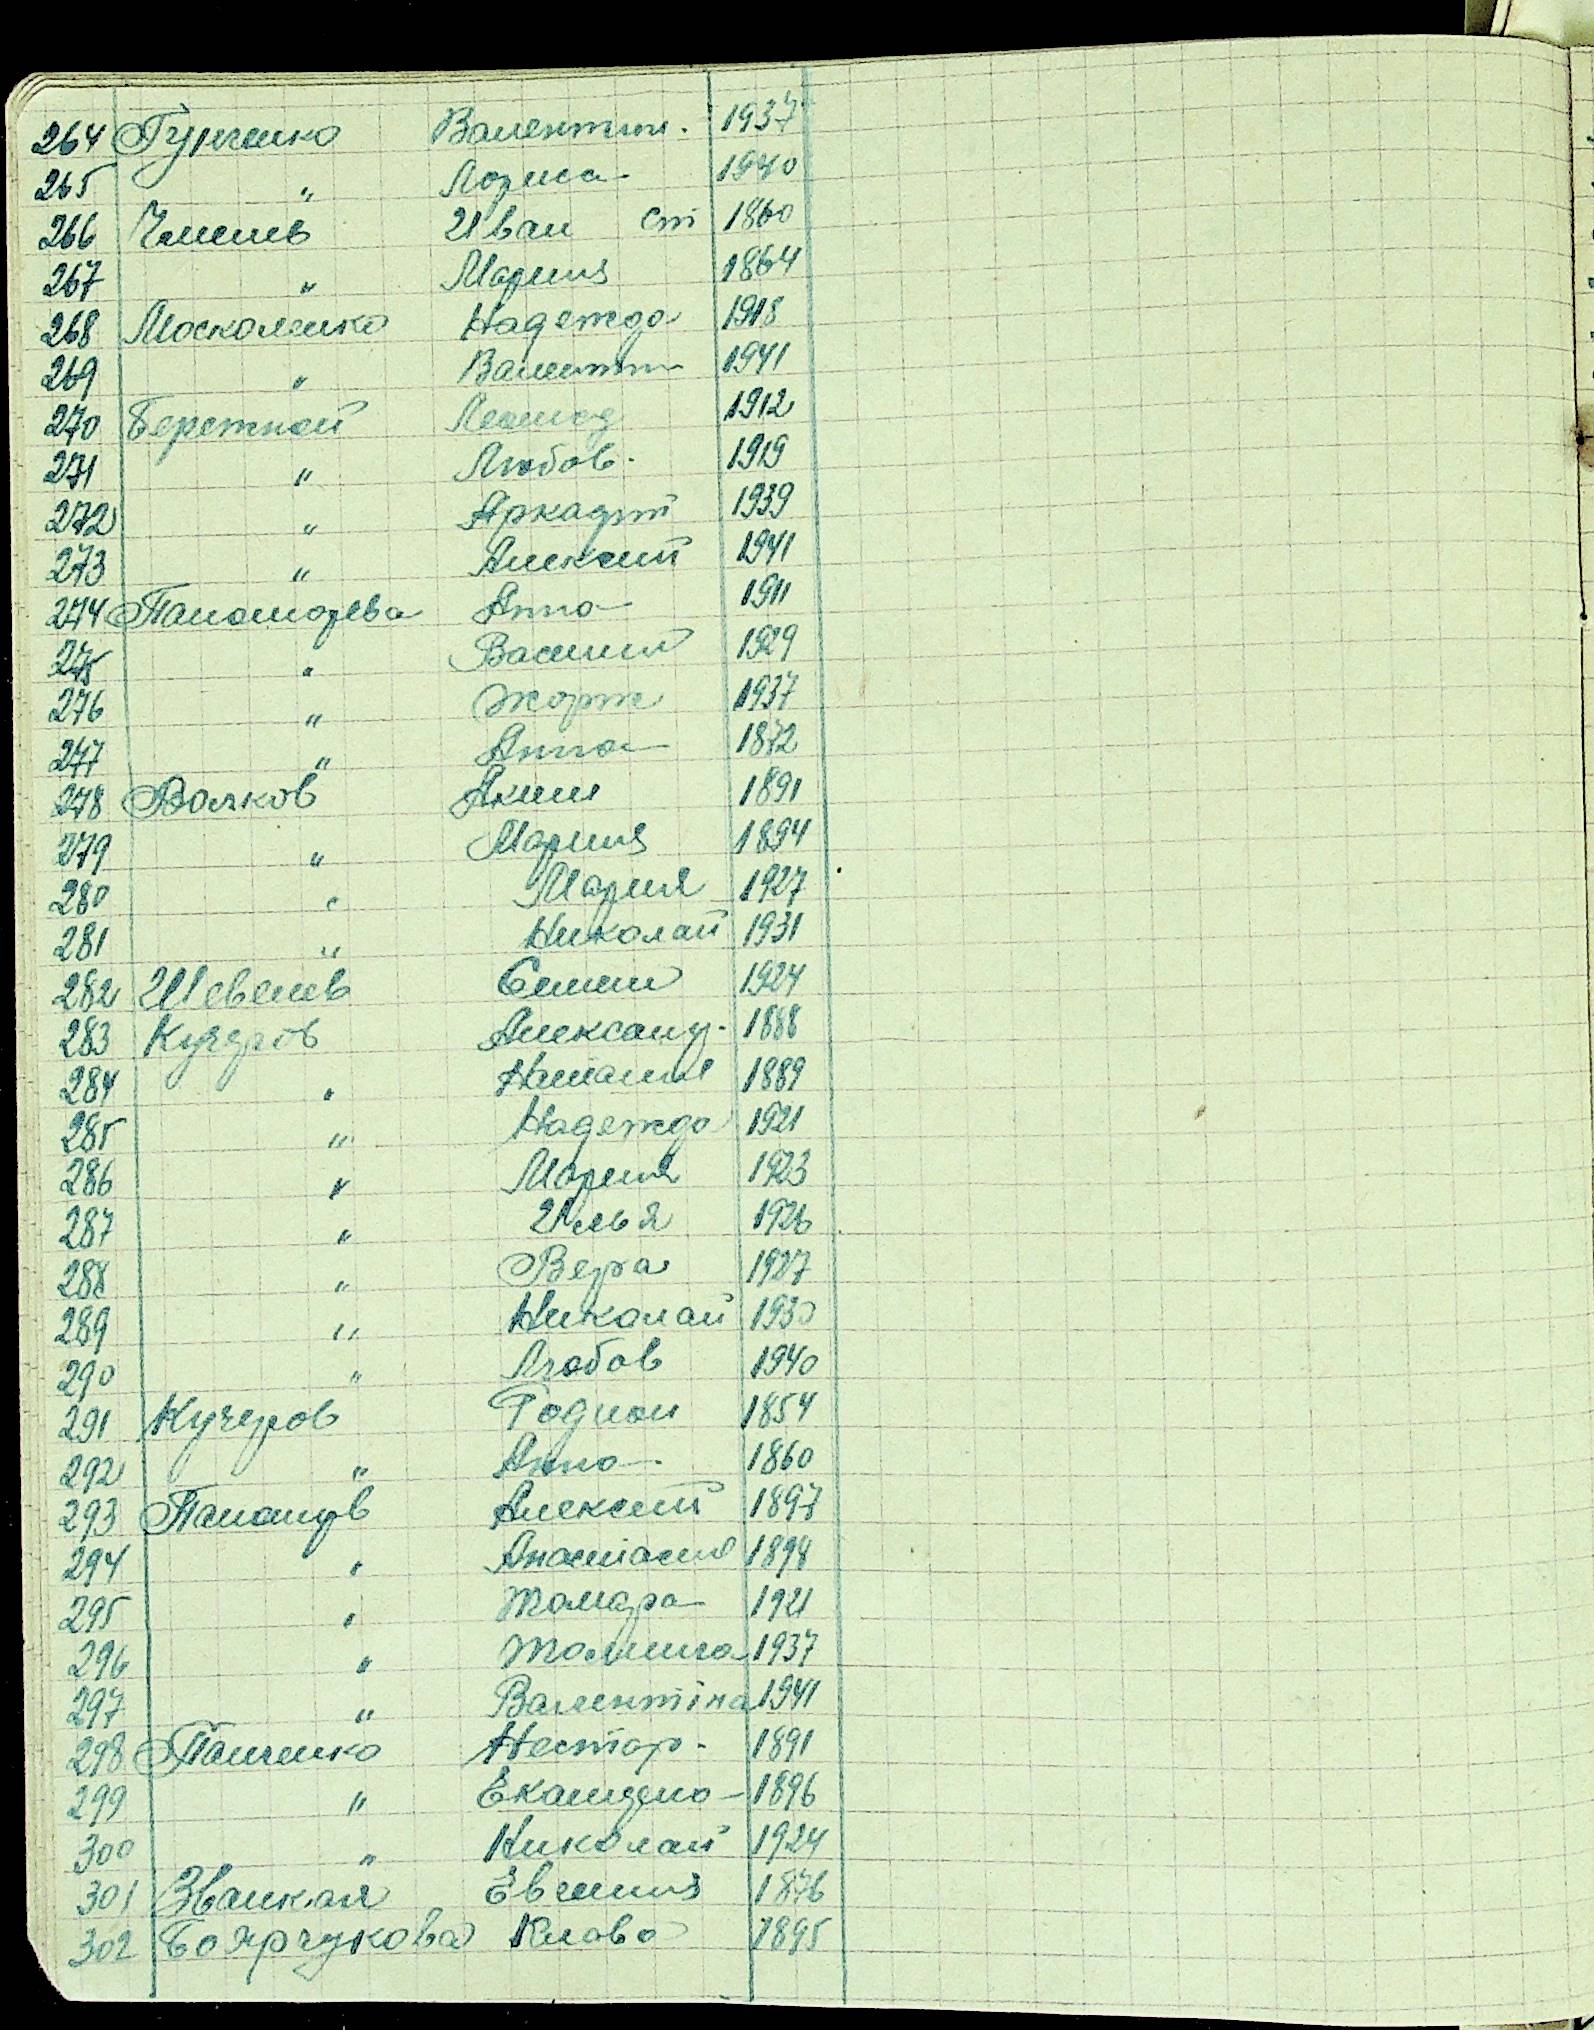 264 Гунченко Валентин. 1937
265 " Лориса 1940
266 Чмелев Иван ст 1860
267 " Мария 1864
268 Москаленко Надежда 1918
269 " Валентин 1941
270 Бережной Леонид 1912
271 " Любов. 1919
272 " Аркадий 1939
273 " Алексей 1941
274 Анна 1911
275 " Василий 1929
276 " Жорж 1937
247 " Анна 1872
278 Волков Аким 1891
279 " Мария 1894
280 " Мария 1927
281 " Николай 1931
282 Шевелев Семен 1924
283 Кучеров Александ. 1888
284 " Наталия 1889
285 " Надежда 1921
286 " Мария 1923
287 " Илья 1926
288 " Вера 1927
289 " Николай 1930
290 " Любов 1940
291 Кучеров Родион 1854
292 " Анна 1860
293 Алексей 1897
294 " Анастасия 1898
295 " Томара 1921
296 " 1937
297 " Валентіна 1941
298 Панченко Нестор. 1891
299 " 1896
300 " Николай 1924
301 Евгения 1876
302 Боярчукова Клава 1895